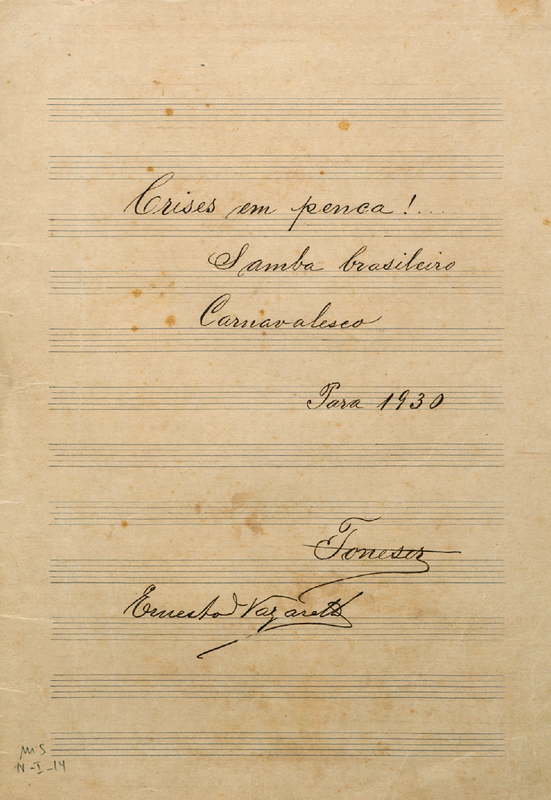 Crises em penca!...
Samba brasileiro
Carnavalesco
Para 1930
Toneser
Ernesto Nazareth
MS
N-I-14